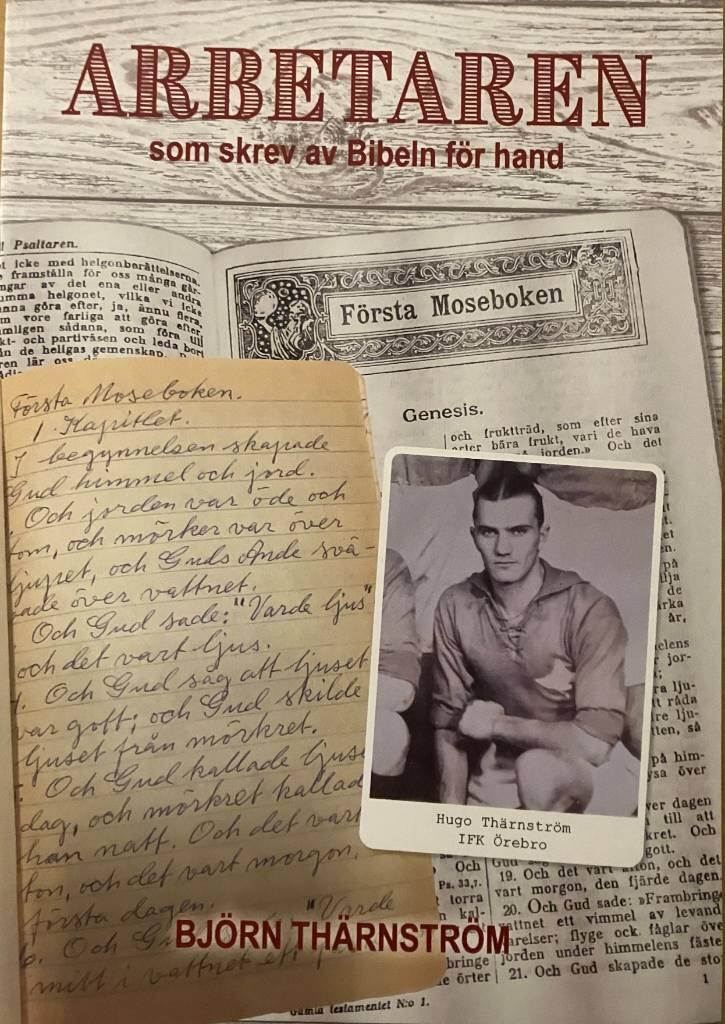 ARBETAREN
som skrev av Bibeln för hand
Psaltaren.
icke med helgonberättelserna.
framställa för oss många går.
av det ena eller andra
helgonet, vilka vi icke
göra efter, ja, ännu flera,
vore farliga att göra efter
sådana, som föra till
och partiväsen och leda bort
de heligas gemenskap.
lär oss
Första Moseboken
Genesis.
och fruktträd, som efter sina
arter bära frukt, vari de hava
jorden.» Och det
Första Moseboken.
1 Kapitlet.
I begynnelsen skapade
Gud himmel och jord.
Och jorden var öde och
tom, och mörker var över
djupet, och Guds Ande svä-
vade över vattnet.
Och Gud sade: "Varde ljus"
och det vart ljus.
Och Gud såg att ljuset
var gott; och Gud skilde
ljuset från mörkret.
Och Gud kallade ljus
dag, och mörkret kallad
han natt. Och det vart
ton, och det vart morgon,
första dagen.
6. Och G "Varde
mitt i vattnet
et
en.
på
de
år,
jor-
ra lju-
tt råda
re lju-
tten, så
på him-
ysa över
ver dagen
till att
kret. Och
gott.
Hugo Thärnström
IFK Örebro
Och
Ps. 33,7.
torra
Gud såg
19. Och det vart afton, och det
vart morgon, den fjärde dagen.
20. Och Gud sade: »Frambring
vattnet ett vimmel av levand
varelser; flyge ock fåglar öve
jorden under himmelens fäste
21. Och Gud skapade de sto
bringe
örter
BJÖRN THÄRNSTRÖM
Gamla testamentet N:o 1.
1